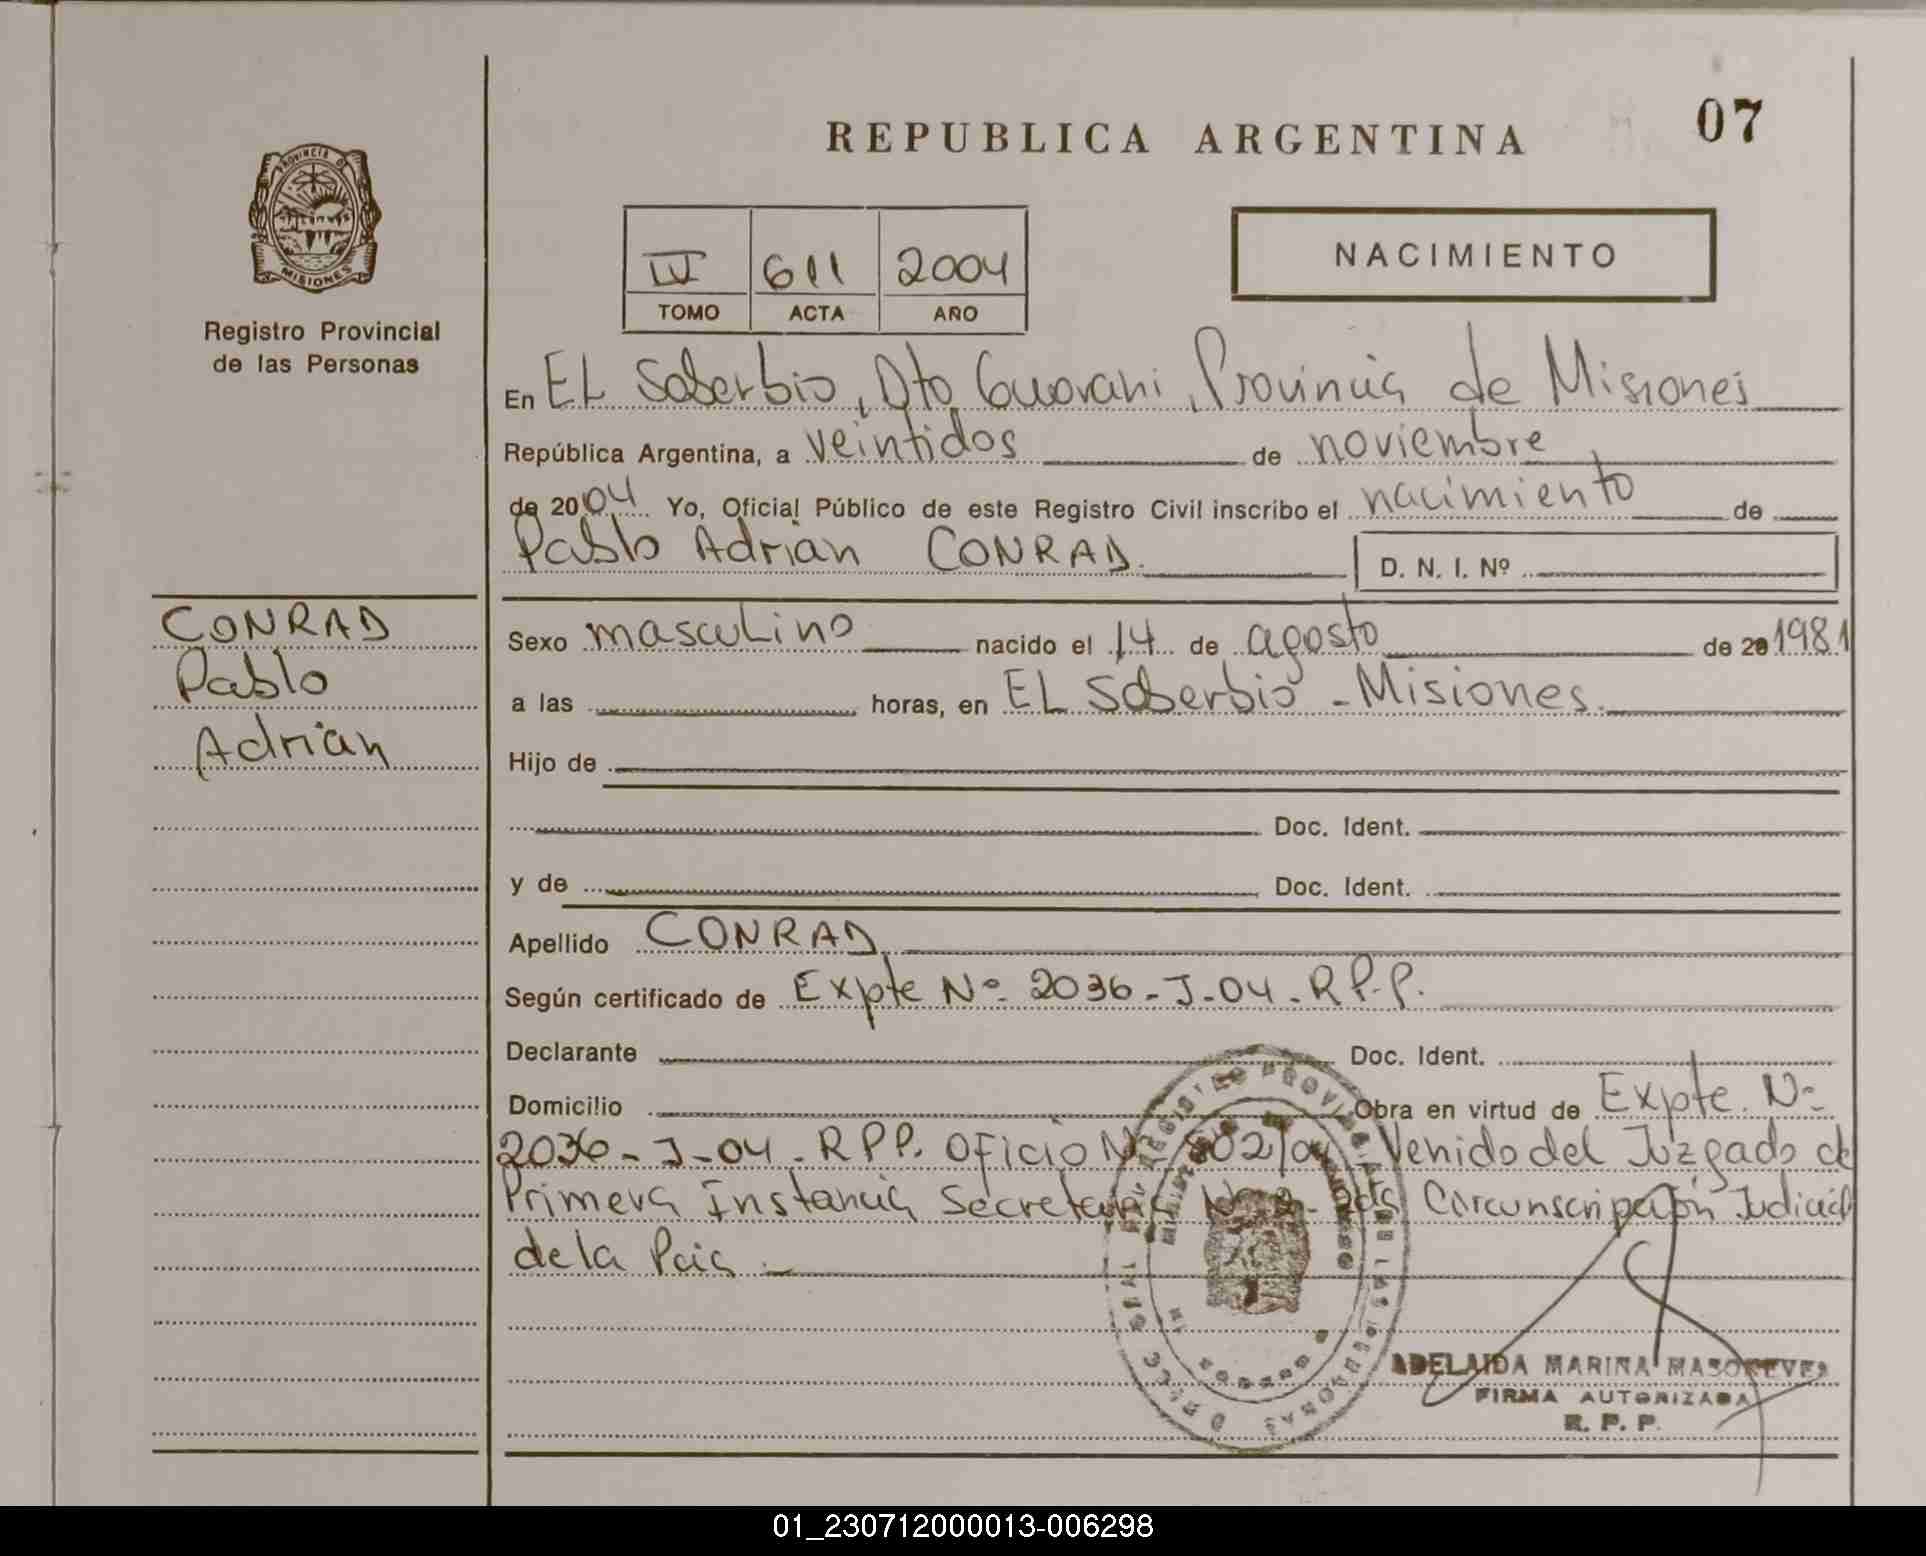 REPUBLICA ARGENTINA
07
PROVINCIA DE
MISIONES
Registro Provincial
de las Personas
611 2004
TOMO ACTA AÑO
NACIMIENTO
En EL Soberbio, Dto Guarani, Provincia de Misiones
República Argentina, a veintidos de noviembre
de 2004 Yo, Oficial Público de este Registro Civil inscribo el nacimiento de
Pablo Adrián CONRAD.
D. N. I. Nº
CONRAD
Pablo
Adrián
Sexo masculino nacido el 14 de agosto de 20 1981
a las horas, en EL Soberbio - Misiones.
Hijo de
Doc. Ident.
y de Doc. Ident.
Apellido CONRAD
Según certificado de Expte Nº 2036-J-04-R.P.P.
Declarante Doc. Ident.
Domicilio Obra en virtud de Expte. Nº
2036-J-04-RPP. Oficio Venido del Juzgado de
Primera Instancia Secretaria Circunscripción Judicial
de la
ADELAIDA MARINA
FIRMA AUTORIZADA
R. P. P.
01_230712000013-006298